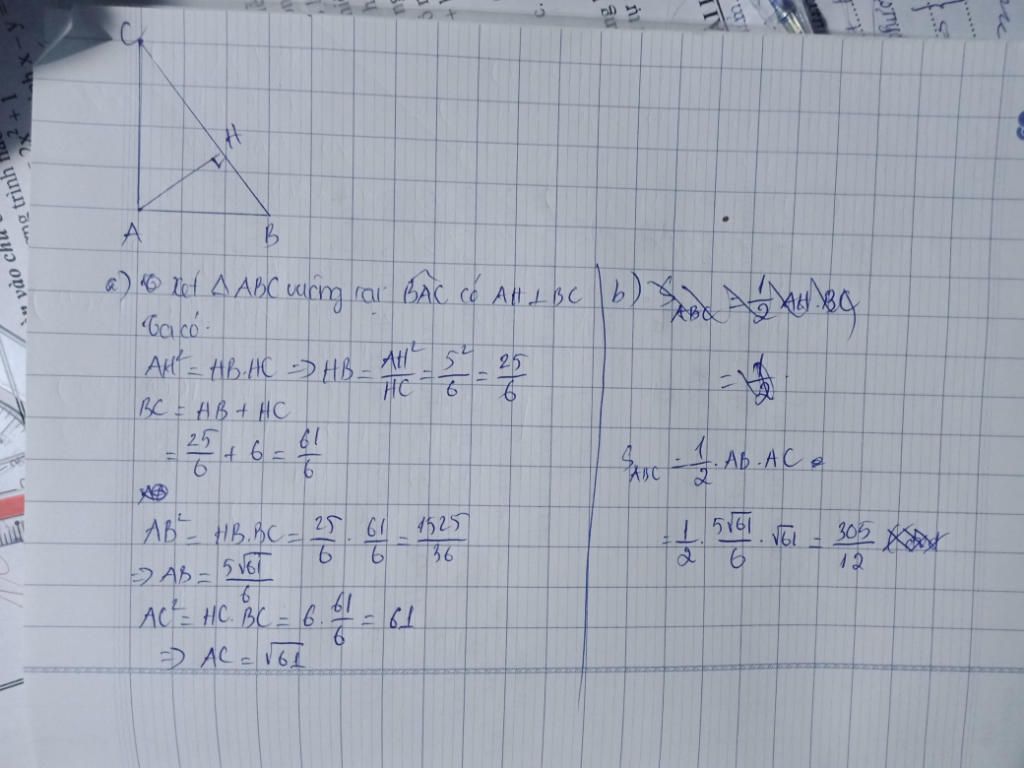 C
H
A
B
a) Xét △ABC vuông tại BAC có AH ⊥ BC
Ta có:
AH² = HB.HC => HB = AH²/HC = 5²/6 = 25/6
BC = HB + HC
= 25/6 + 6 = 61/6
AB² = HB.BC = 25/6 . 61/6 = 1525/36
=> AB = 5√61/6
AC² = HC.BC = 6 . 61/6 = 61
=> AC = √61
b) S_ABC = 1/2 AH.BC
= 1/2
S_ABC = 1/2 . AB . AC
= 1/2 . 5√61/6 . √61 = 305/12